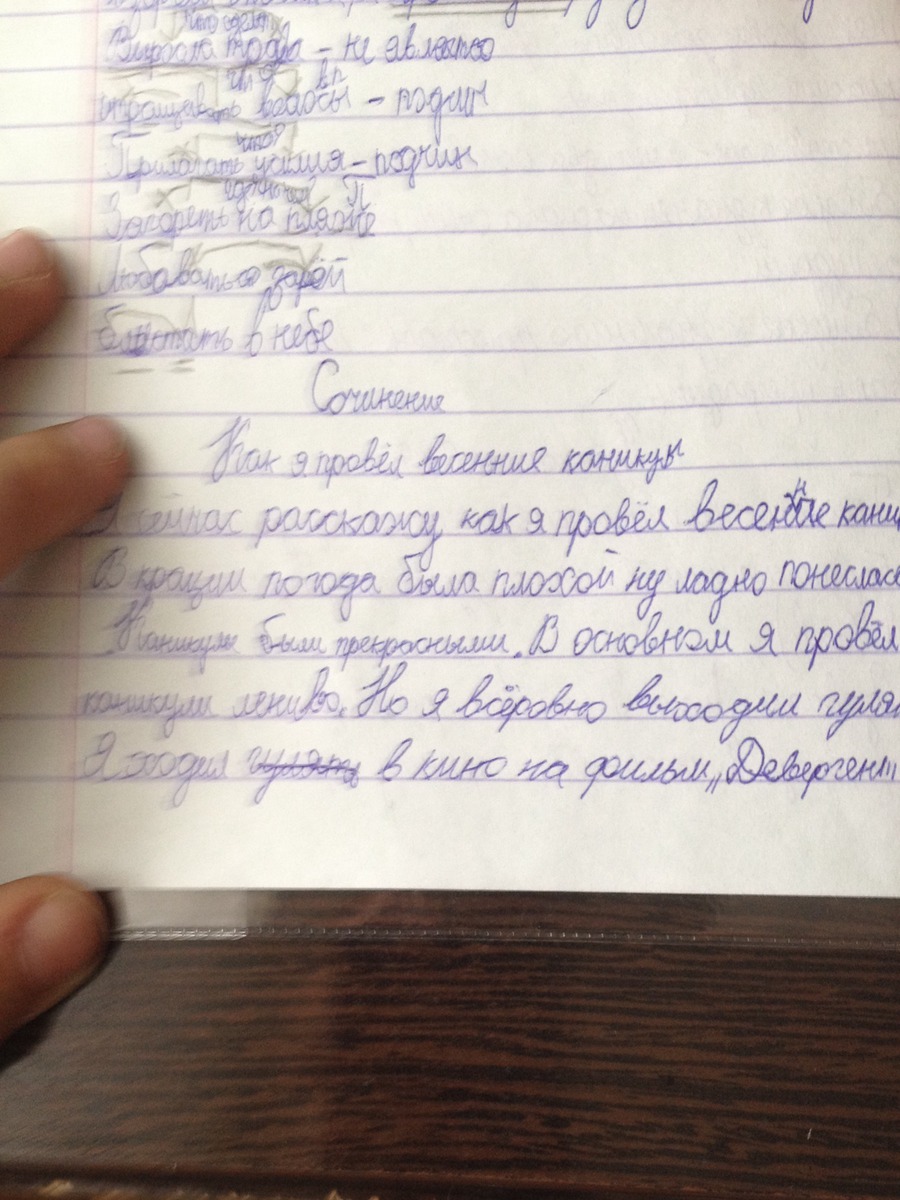 что сделать
Выросла трава - не является
что? вп
отращивать волосы - подчин
что?
Прилагать усилия - подчин
П
Загореть на пляже
Любоваться зарёй
блистать в небе
Сочинение
Как я провёл весенние каникулы
Я сейчас расскажу как я провёл весение кани
В крации погода была плохой ну ладно понеслась
Каникулы были прекрасными. В основном я провёл
каникулы лениво. Но я всёровно выходил гуля
Я ходил в кино на фильм „Девергент"